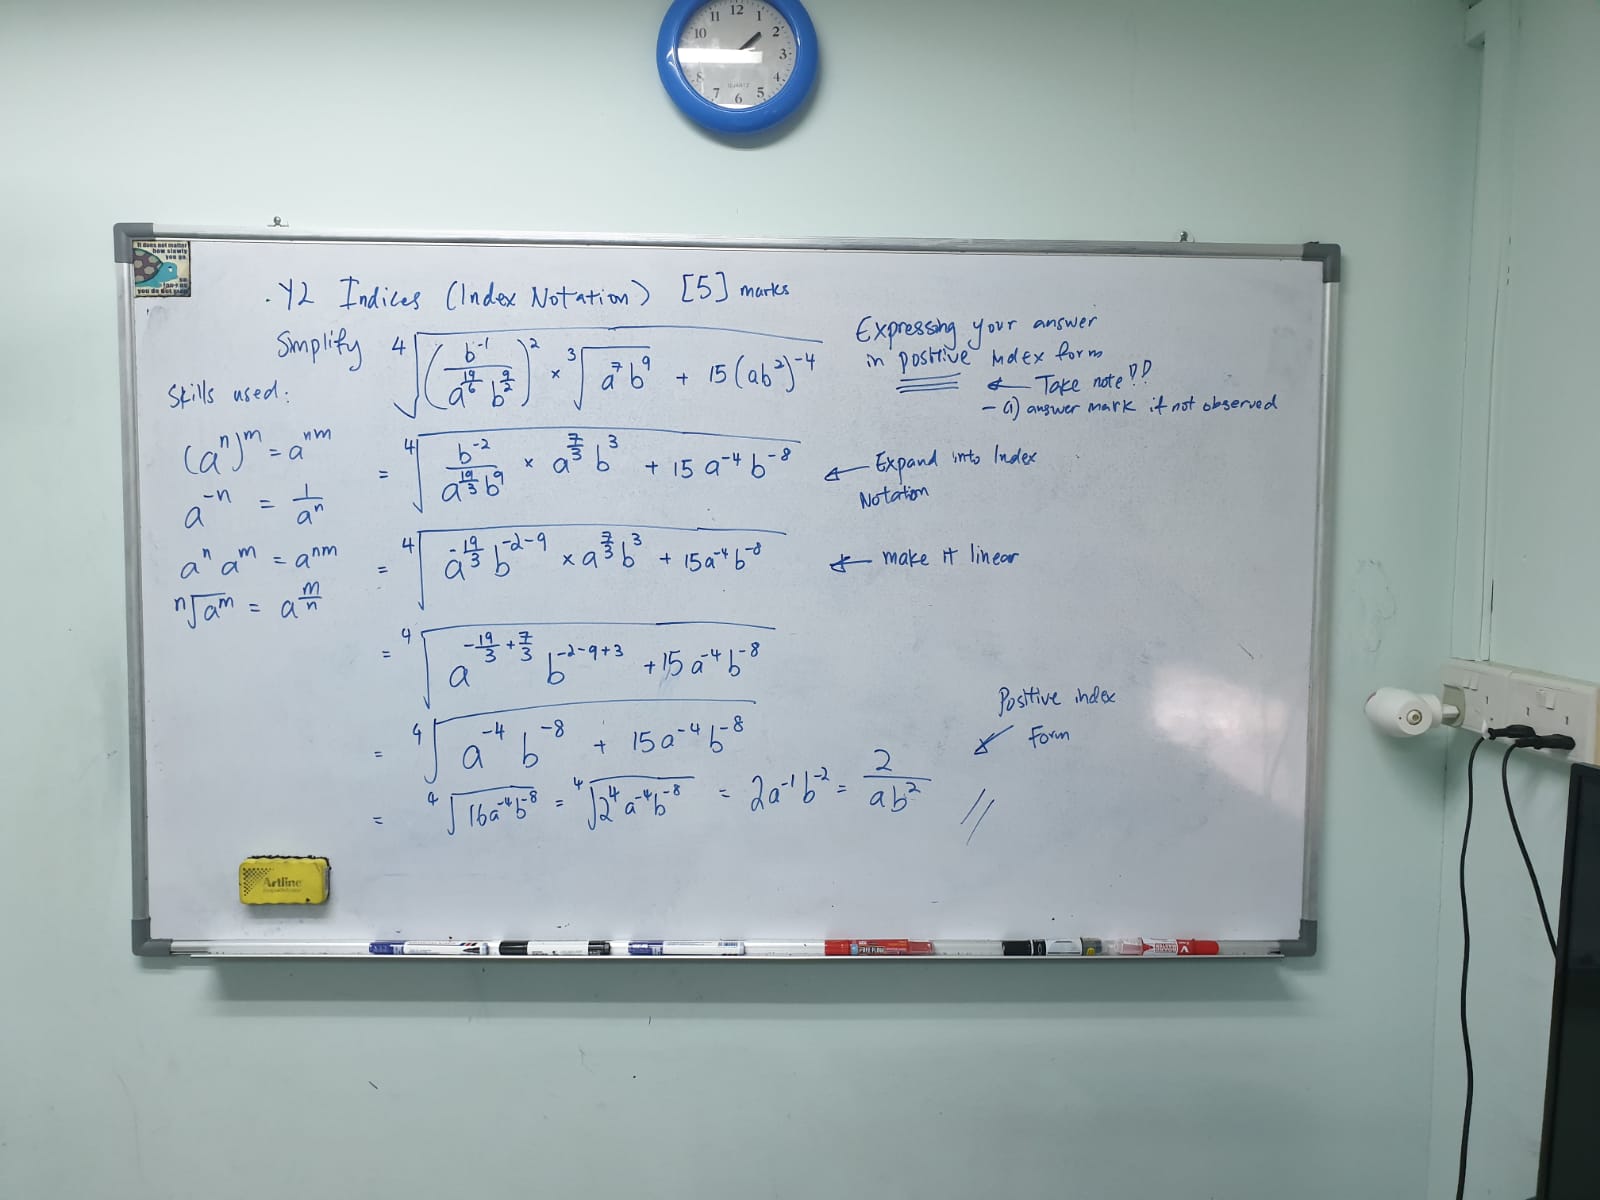 11 12 1
10 2
3
8 4
QUARTZ
7 6 5
It does not matter
how slowly
you go
so
long as
you do not stop
. Y2 Indices (Index Notation) [5] marks
Simplify ⁴√((b⁻¹/(a^(19/6) b^(9/2)))² × ³√(a⁷b⁹) + 15(ab²)⁻⁴)
Expressing your answer
in positive index form
← Take note!!
- (1) answer mark if not observed
Skills used:
(aⁿ)ᵐ = aⁿᵐ
a⁻ⁿ = 1/aⁿ
aⁿ aᵐ = aⁿᵐ
ⁿ√aᵐ = a^(m/n)
= ⁴√(b⁻²/(a^(19/3) b⁹) × a^(7/3) b³ + 15a⁻⁴b⁻⁸)
← Expand into Index
Notation
= ⁴√(a^(-19/3) b^(-2-9) × a^(7/3) b³ + 15a⁻⁴b⁻⁸)
← make it linear
= ⁴√(a^(-19/3+7/3) b^(-2-9+3) + 15a⁻⁴b⁻⁸)
= ⁴√(a⁻⁴ b⁻⁸ + 15a⁻⁴b⁻⁸)
= ⁴√(16a⁻⁴b⁻⁸) = ⁴√(2⁴a⁻⁴b⁻⁸) = 2a⁻¹b⁻² = 2/(ab²) //
Positive index
↙ Form
Artline